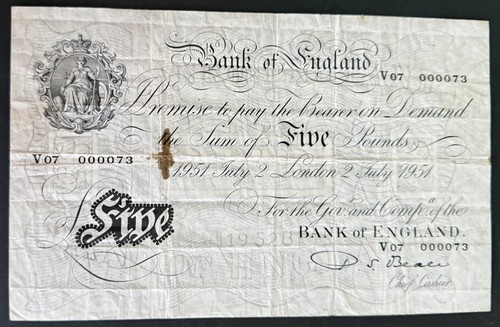 Bank of England
V07 000073
I Promise to pay the Bearer on Demand
the Sum of Five Pounds
V07 000073
1951 July 2 London 2 July 1951
For the Gov.r and Comp.a of the
Five
BANK of ENGLAND.
V07 000073
P. S. Beale
Chief Cashier